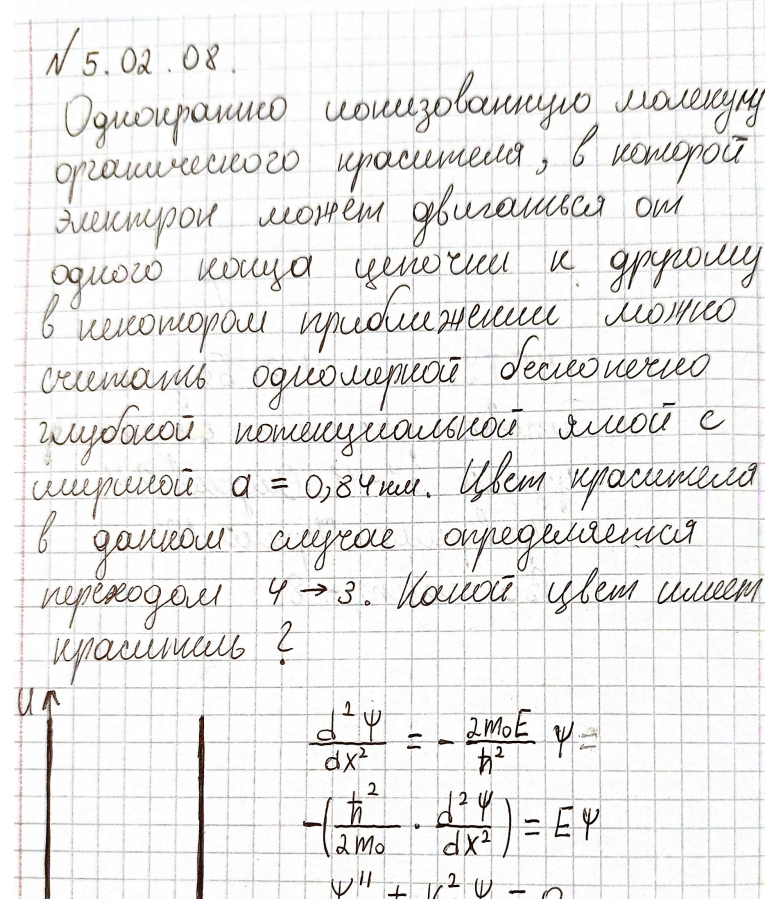 № 5.02.08.
Однократно ионизованную молекулу
органического красителя, в которой
электрон может двигаться от
одного конца цепочки к другому
в некотором приближении можно
считать одномерной бесконечно
глубокой потенциальной ямой с
шириной a = 0,84 нм. Цвет красителя
в данном случае определяется
переходом 4 → 3. Какой цвет имеет
краситель ?
U
d²Ψ/dx² = - 2m₀E/ħ² Ψ =
-(ħ²/2m₀ · d²Ψ/dx²) = EΨ
Ψ'' + k²Ψ = 0